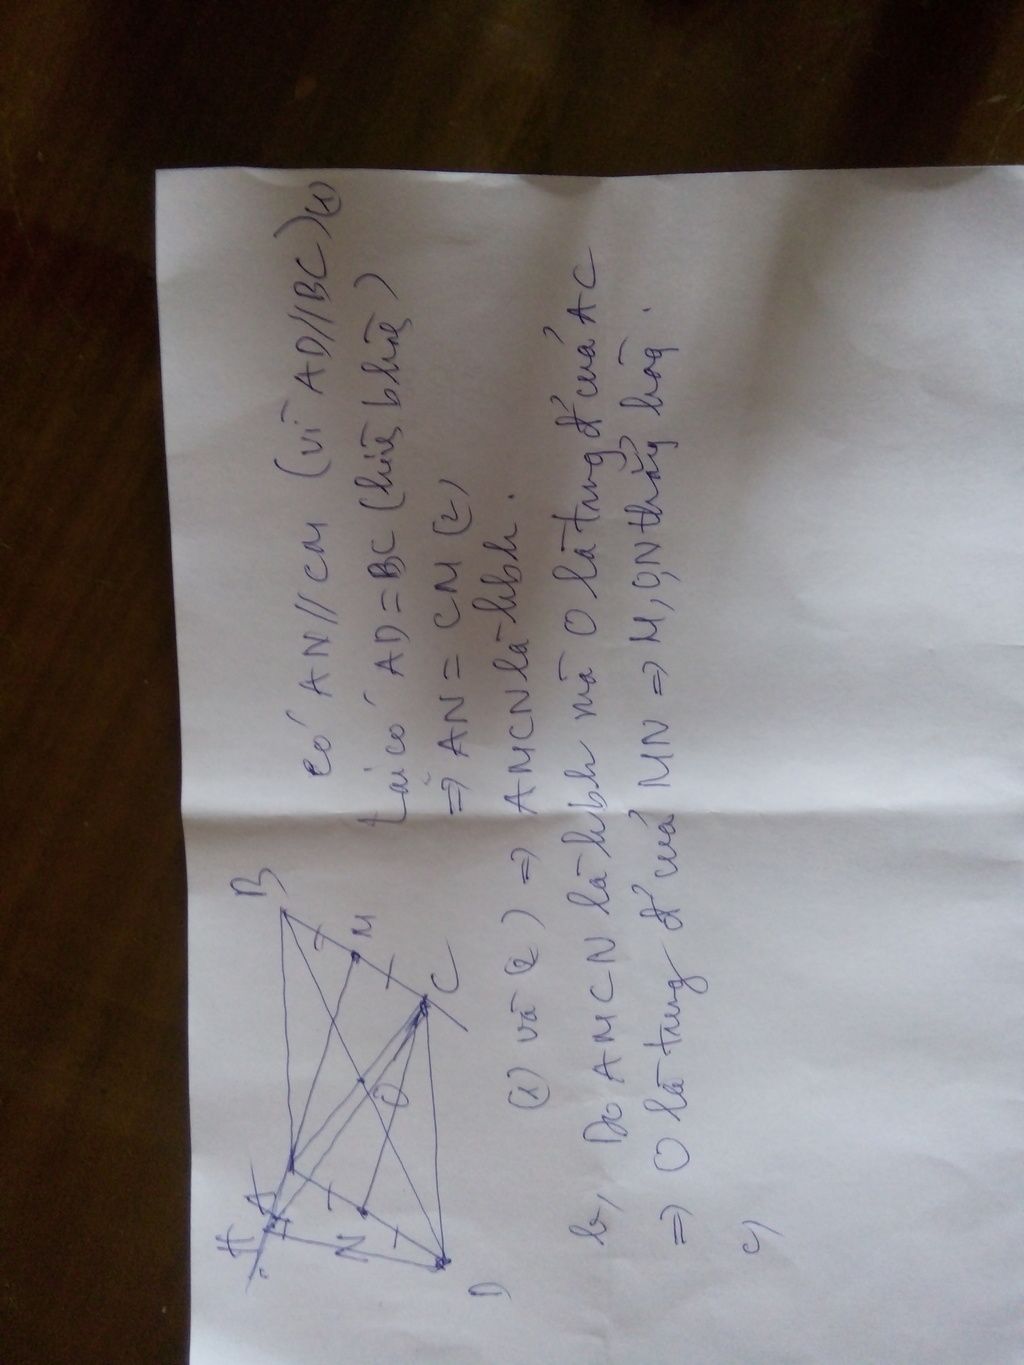 H
A
B
N
O
M
D
C
có AN//CM (vì AD//BC)(1)
Lại có AD=BC (hình bhành)
=> AN = CM (2)
(1) và (2) => AMCN là hbh.
b, Do AMCN là hbh mà O là trung đ' của AC
=> O là trung đ' của MN => M,O,N thẳng hàng.
c)